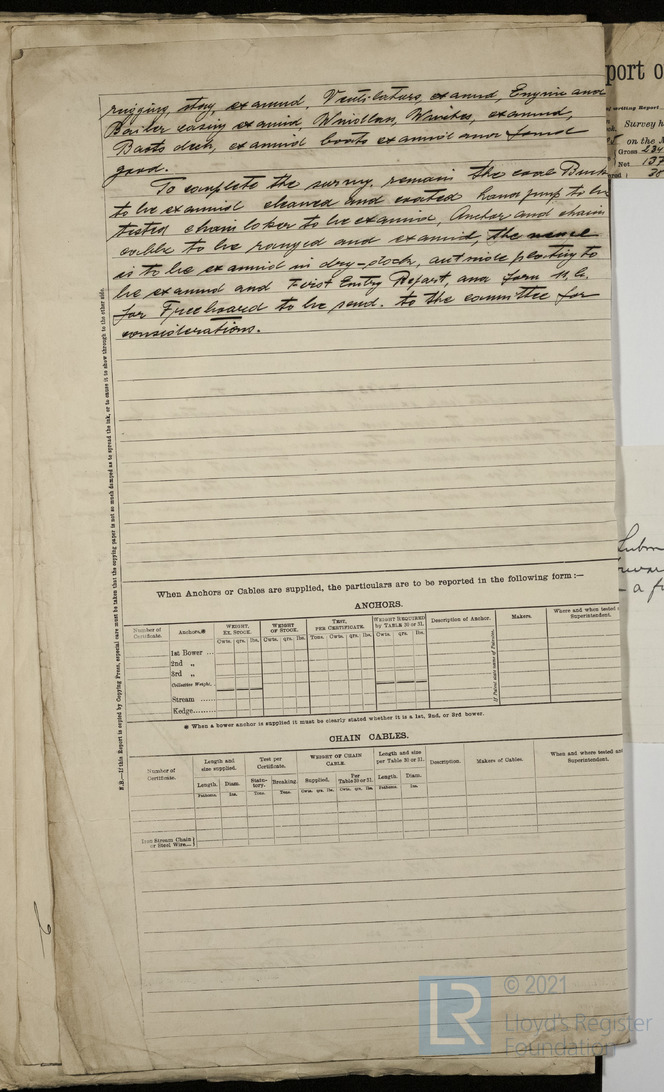 rigging, stay, examined, Ventilators, examed, Engine and
Boiler casing examid, Windlass, Winches, examined,
Boats deck, examinid boats examinid and found
good.
To complete the survey, remain the coal Bunk
to be examinid cleaned and coated hand pump to be
tested chain loker to be examinid, Anchor and chain
cable to be ranged and examinid, the
is to be examinid in dry-dock, outside plating to
be examind and First Entry Report, and form 11.
for Freeboard to be send. to the committee for
considerations.
N.B.—If this Report is copied by Copying Press, especial care must be taken that the copying paper is not so much damped as to spread the ink, or to cause it to show through to the other side.
When Anchors or Cables are supplied, the particulars are to be reported in the following form :—
ANCHORS.
Number of Certificate. Anchors.* WEIGHT, EX. STOCK. WEIGHT OF STOCK. TEST, PER CERTIFICATE. WEIGHT REQUIRED by TABLE 30 or 31. Description of Anchor. Makers. Where and when tested Superintendent.
Cwts. qrs. lbs. Cwts. qrs. lbs. Tons. Cwts. qrs. lbs. Cwts. qrs. lbs.
1st Bower ...
2nd „
3rd „
Collective Weight.
Stream ......
Kedge........
If Patent state name of Patentee.
* When a bower anchor is supplied it must be clearly stated whether it is a 1st, 2nd, or 3rd bower.
CHAIN CABLES.
Number of Certificate. Length and size supplied. Test per Certificate. WEIGHT OF CHAIN CABLE. Length and size per Table 30 or 31. Description. Makers of Cables. When and where tested and Superintendent.
Length. Diam. Statutory. Breaking. Supplied. Per Table 30 or 31. Length. Diam.
Fathoms. Ins. Tons. Tons. Cwts. qrs. lbs. Cwts. qrs. lbs. Fathoms. Ins.
Iron Stream Chain or Steel Wire...
port o
writing Report
Survey h
on the
Gross 234
Net 137
- a fi
LR
© 2021
Lloyd's Register
Foundation